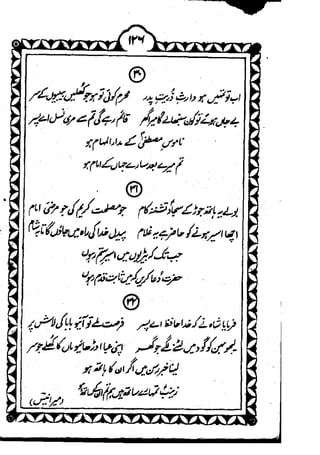 ۱۲۶
۳۰
اب تو تمہیں ہو وارثِ ذریتِ پدر محرم کوئی تو ہو جو کھلیں بیبیوں کے سر
بے جاں ہوئے تو کون سنبھالے گا پھر گھر قائم رہے گی تم سے مری نسل اے پسر
ناموسِ مصطفیٰ کے مدار المہام ہو
تم میرے بعد سارے جہاں کے امام ہو
۳۱
بولے یہ ہاتھ جوڑ کے سجادِ تشنہ کام جو مصلحت کریم کی جو مرضیِ امام
اچھا اسیر ہونے کو حاضر ہے یہ غلام پیدل خدا کی راہ میں جاؤں گا تا بہ شام
جب تک کہ بیڑیوں میں اسیرِ ستم رہوں
حضرت دعا کریں کہ میں ثابت قدم رہوں
۳۲
فرمایا شاہ نے کہ خدا حافظ اے پسر فرصت ملے تو آئیو بابا کی لاش پر
لیجو بہن کو گود میں لٹنے لگے جو گھر اپنی عبا اڑھائیو ماں کا کھلے جو سر
لینا خبر رسن میں اگر ان کا ہاتھ ہو
زینب تمہارے ساتھ ہیں تم ان کے ساتھ ہو
(میر انیس)